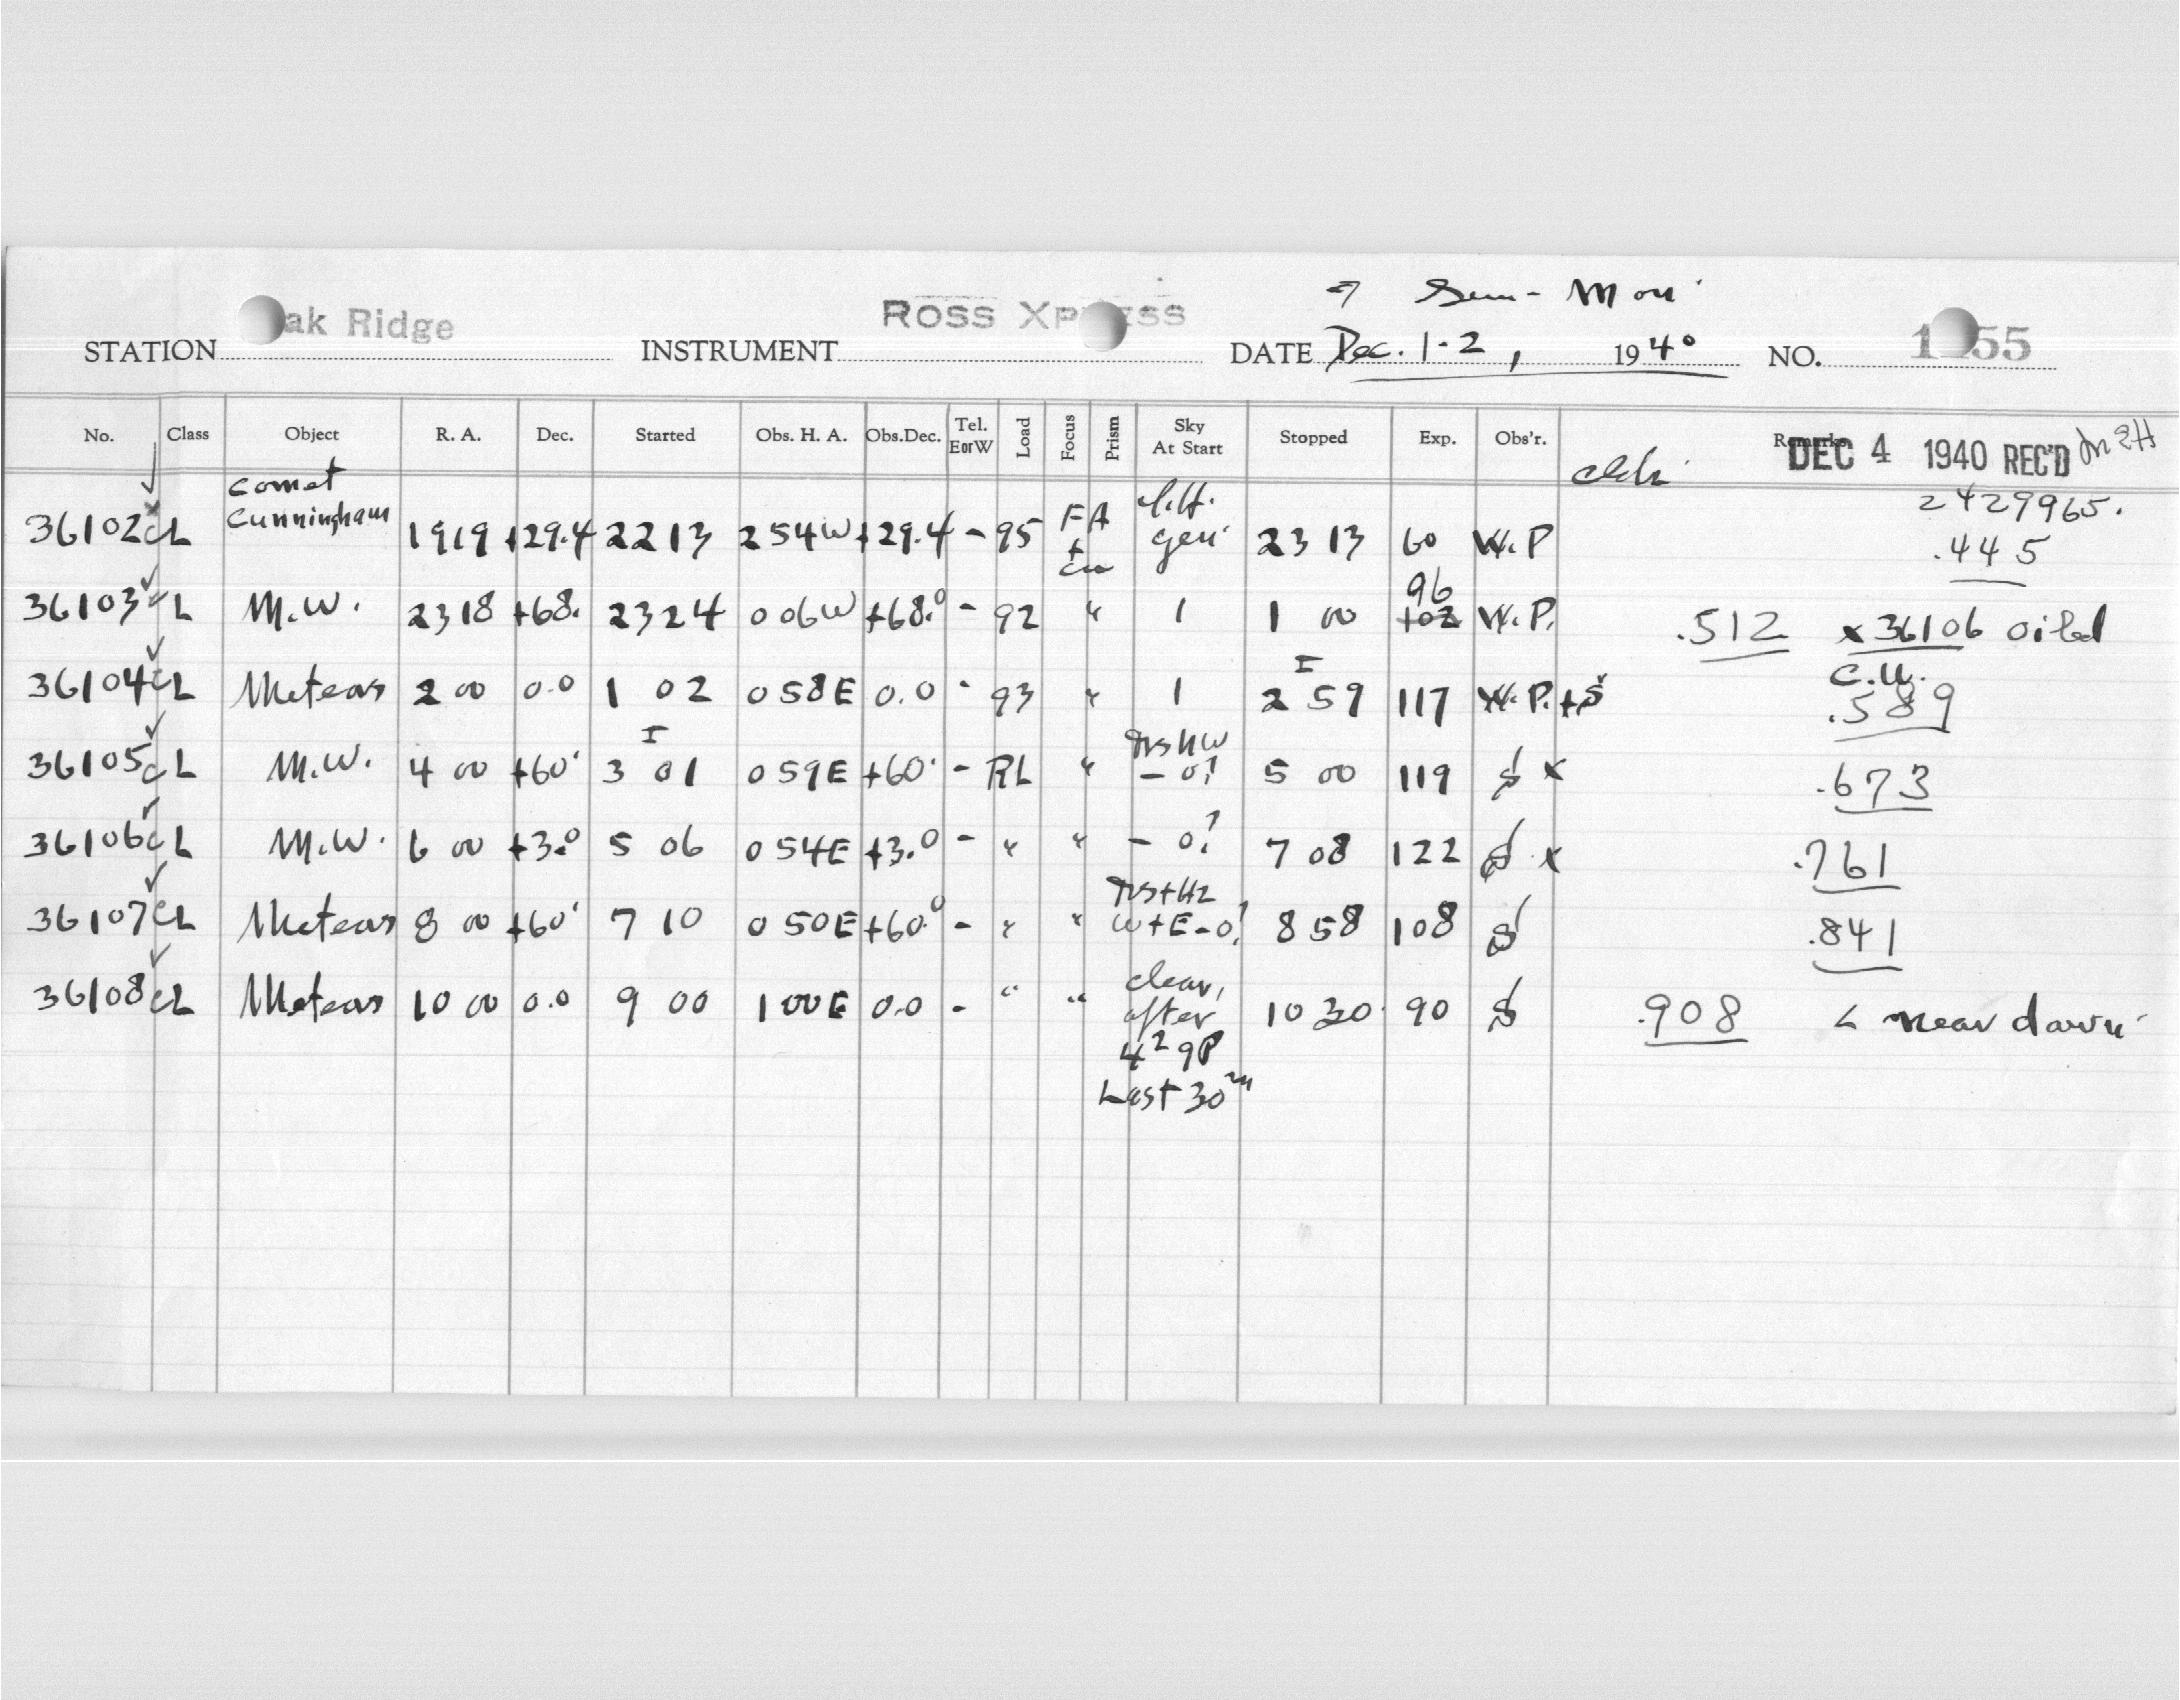 Sun - Mon
STATION ak Ridge INSTRUMENT ROSS XP ESS DATE Dec. 1-2, 1940 NO. 1 55
No. Class Object R. A. Dec. Started Obs. H. A. Obs.Dec. Tel. EorW Load Focus Prism Sky At Start Stopped Exp. Obs'r. Remarks DEC 4 1940 REC'D
Comet 2429965.
36102 CL Cunningham 19 19 +29.4 22 13 2 54W +29.4 - 95 FA + 23 13 60 W.P .445
96
36103 CL M.W. 23 18 +68. 23 24 0 06W +68.0 - 92 " 1 1 00 102 W.P. .512 x 36106 oiled
I
36104 CL Meteors 2 00 0.0 1 02 0 58E 0.0 - 93 " 1 2 59 117 W.P.+S .589
I
36105 CL M.W. 4 00 +60 3 01 0 59E +60 - RL " - 0? 5 00 119 S x .673
36106 CL M.W. 6 00 +3.0 5 06 0 54E +3.0 - " " - 0? 7 08 122 S x .761
36107 CL Meteors 8 00 +60 7 10 0 50E +60.0 - " " W+E-0? 8 58 108 S .841
36108 CL Meteors 10 00 0.0 9 00 1 00E 0.0 - " " clear, 10 30 90 S .908 < near dawn
after
Last 30m